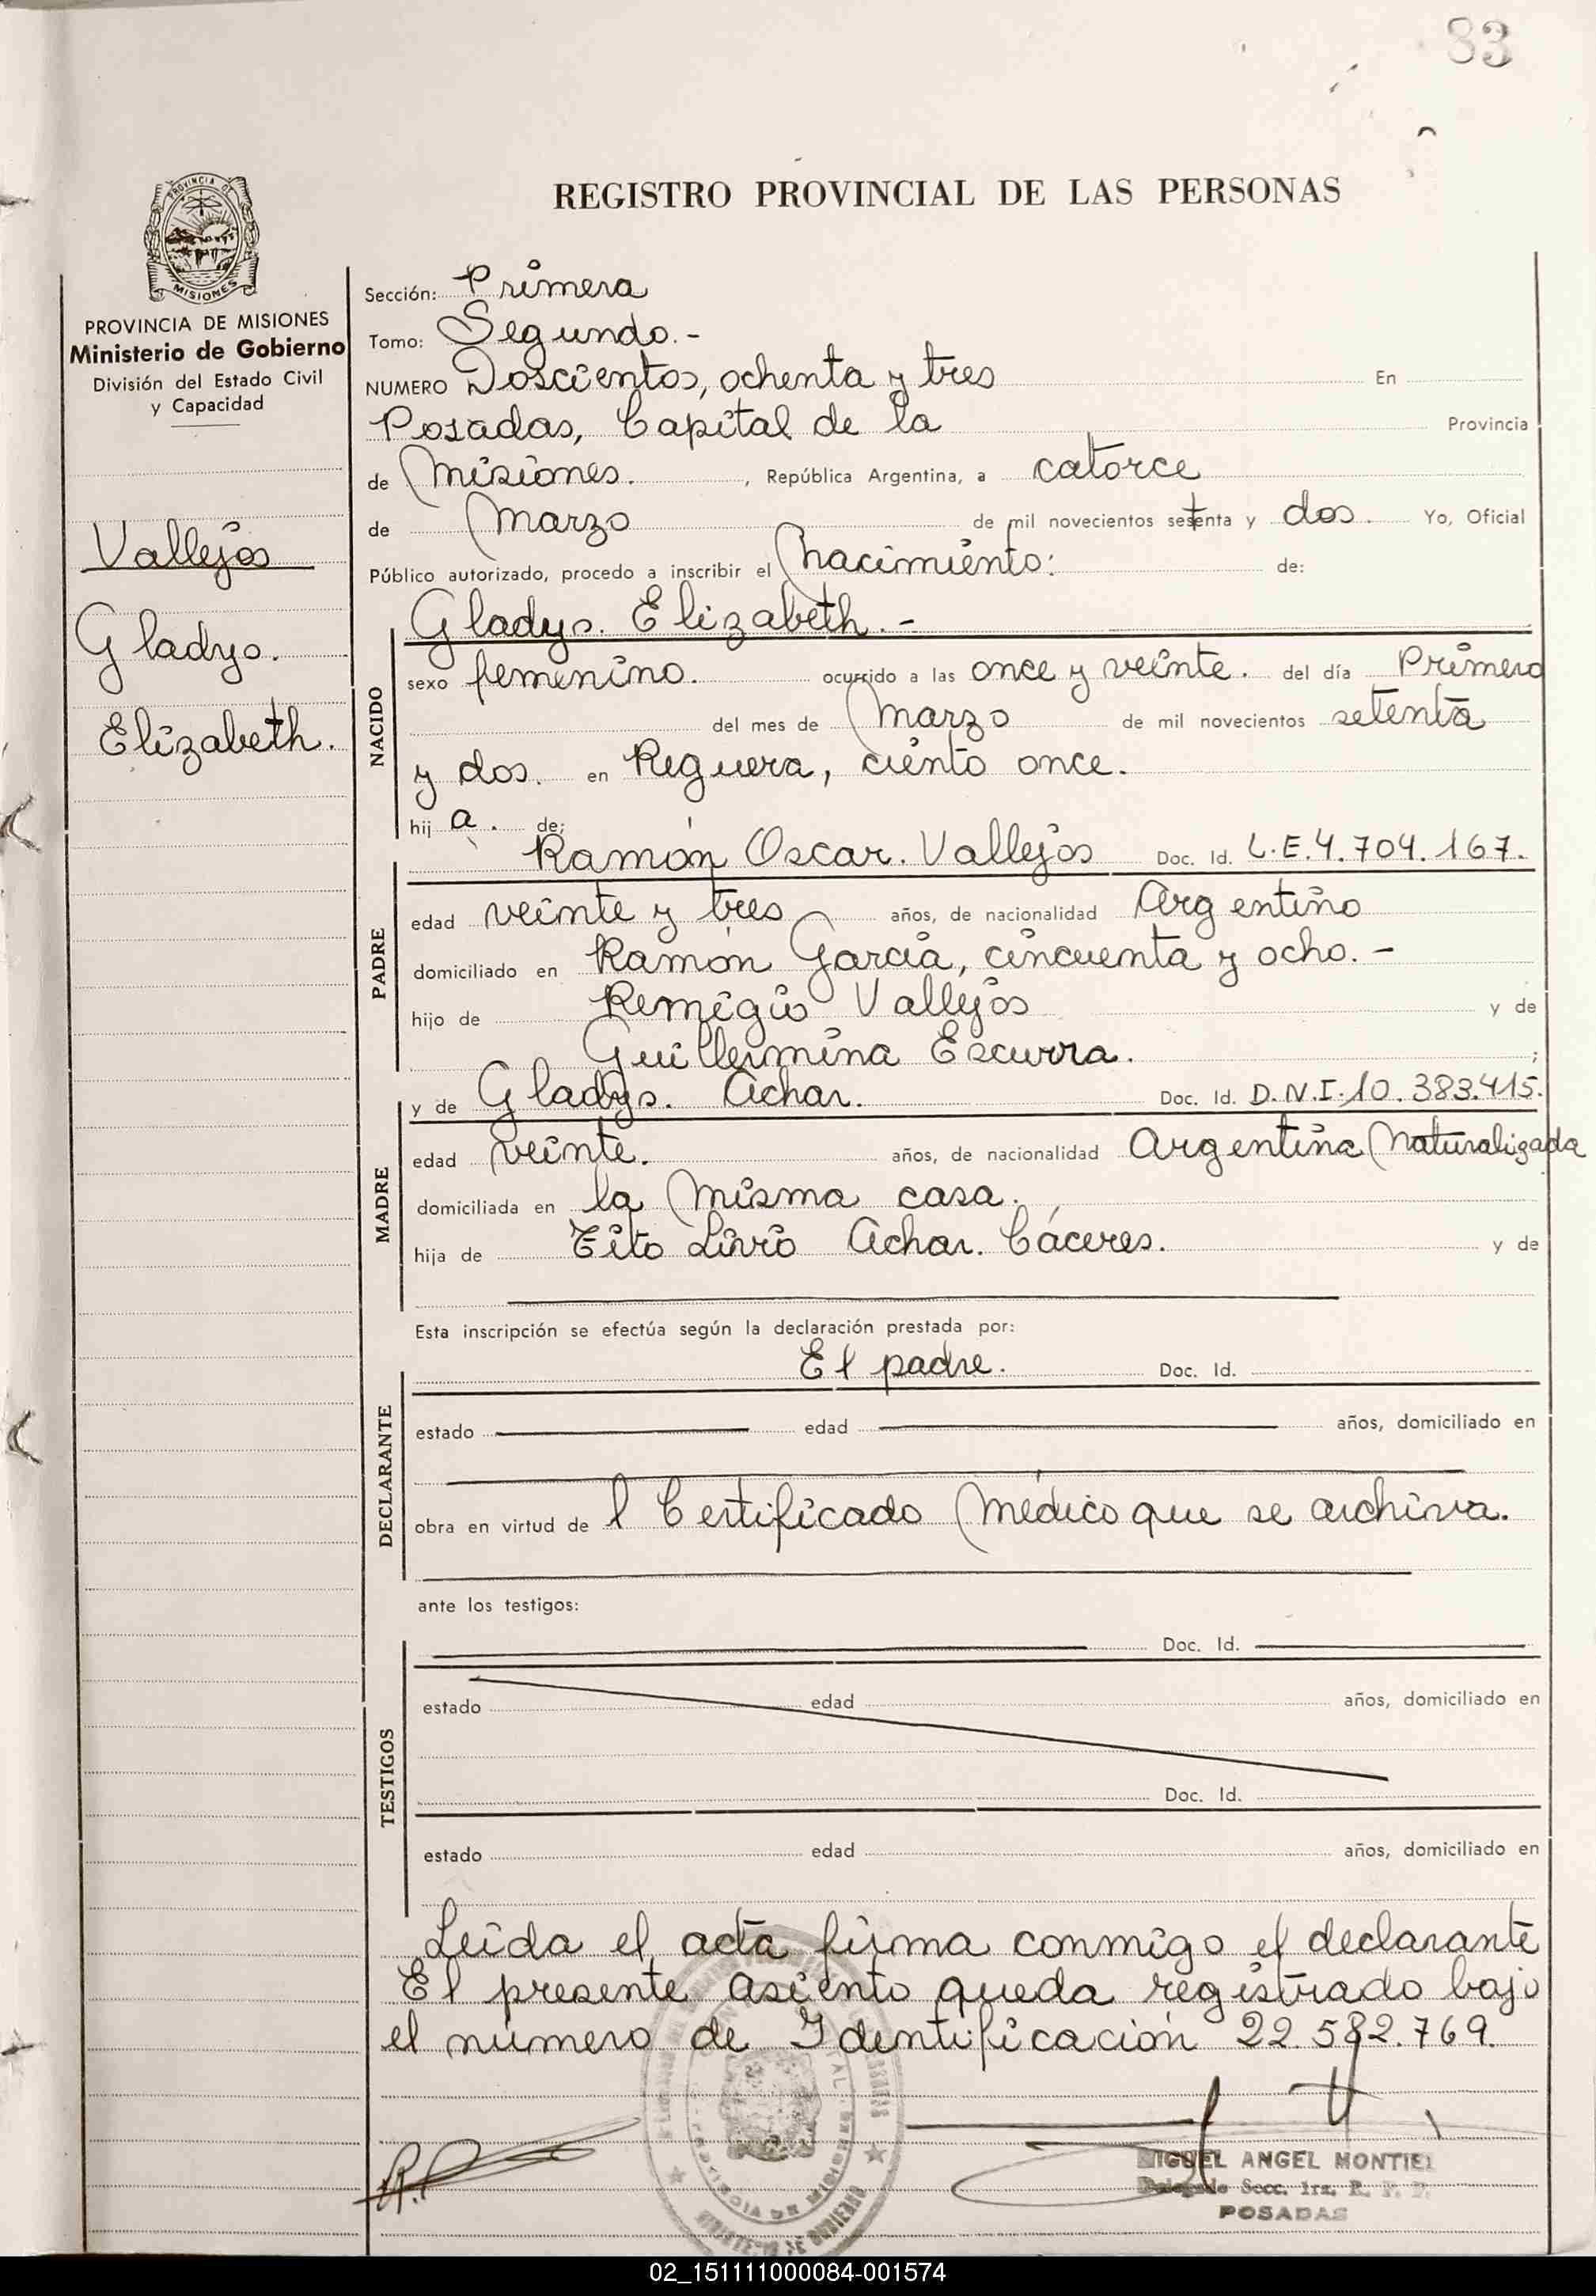 83
PROVINCIA DE
MISIONES
REGISTRO PROVINCIAL DE LAS PERSONAS
PROVINCIA DE MISIONES
Ministerio de Gobierno
División del Estado Civil
y Capacidad
Vallejos
Gladys.
Elizabeth.
Sección: Primera
Tomo: Segundo.-
NUMERO Doscientos, ochenta y tres En
Posadas, Capital de la Provincia
de Misiones. , República Argentina, a catorce
de Marzo de mil novecientos setenta y dos. Yo, Oficial
Público autorizado, procedo a inscribir el Nacimiento: de:
Gladys. Elizabeth.-
NACIDO
sexo femenino. ocurrido a las once y veinte. del día Primero
del mes de Marzo de mil novecientos setenta
y dos. en Reguera, ciento once.
hij a. de:
PADRE
Ramón Oscar. Vallejos Doc. Id. L.E.4.704.167.
edad veinte y tres años, de nacionalidad Argentino
domiciliado en Ramón García, cincuenta y ocho.-
hijo de Remigio Vallejos y de
Guillermina Escurra. ;
MADRE
y de Gladys. Achar. Doc. Id. D.N.I.10.383.415.
edad veinte. años, de nacionalidad Argentina Naturalizada
domiciliada en la Misma casa.
hija de Tito Livio Achar. Cáceres. y de
Esta inscripción se efectúa según la declaración prestada por:
DECLARANTE
El padre. Doc. Id.
estado edad años, domiciliado en
obra en virtud de l Certificado Médico que se archiva.
ante los testigos:
TESTIGOS
Doc. Id.
estado edad años, domiciliado en
Doc. Id.
estado edad años, domiciliado en
Leida el acta firma conmigo el declarante
El presente asiento queda registrado bajo
el número de Identificación 22.582.769.
MIGUEL ANGEL MONTIEL
Delegado Secc. 1ra. R. P. P.
POSADAS
02_151111000084-001574